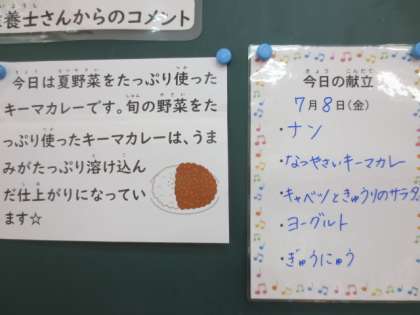 養士さんからのコメント
今日は夏野菜をたっぷり使った
キーマカレーです。旬の野菜をた
っぷり使ったキーマカレーは、うま
みがたっぷり溶け込ん
だ仕上がりになってい
ます☆
今日の献立
7月8日(金)
・ナン
・なつやさいキーマカレー
・キャベツときゅうりのサラダ
・ヨーグルト
・ぎゅうにゅう